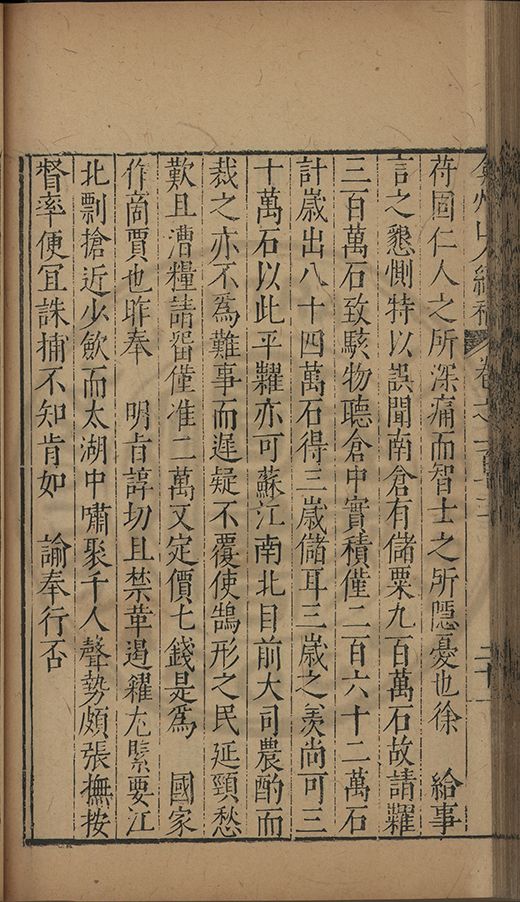 弇州山人續稿 卷之一百 二十一
苻固仁人之所深痛而智士之所隱憂也徐　給事
言之懇惻特以誤聞南倉有儲粟九百萬石故請糶
三百萬石致駭物聽倉中實積僅二百六十二萬石
計歲出八十四萬石得三歲儲耳三歲之羨尚可三
十萬石以此平糶亦可蘇江南北目前大司農酌而
裁之亦不爲難事而遲疑不覆使鵠形之民延頸愁
歎且漕糧請留僅准二萬又定價七錢是爲　國家
作商賈也昨奉　明旨諄切且禁革遏糴尤緊要江
北剽搶近少歛而太湖中嘯聚千人聲勢頗張撫按
督率便宜誅捕不知肯如　諭奉行否